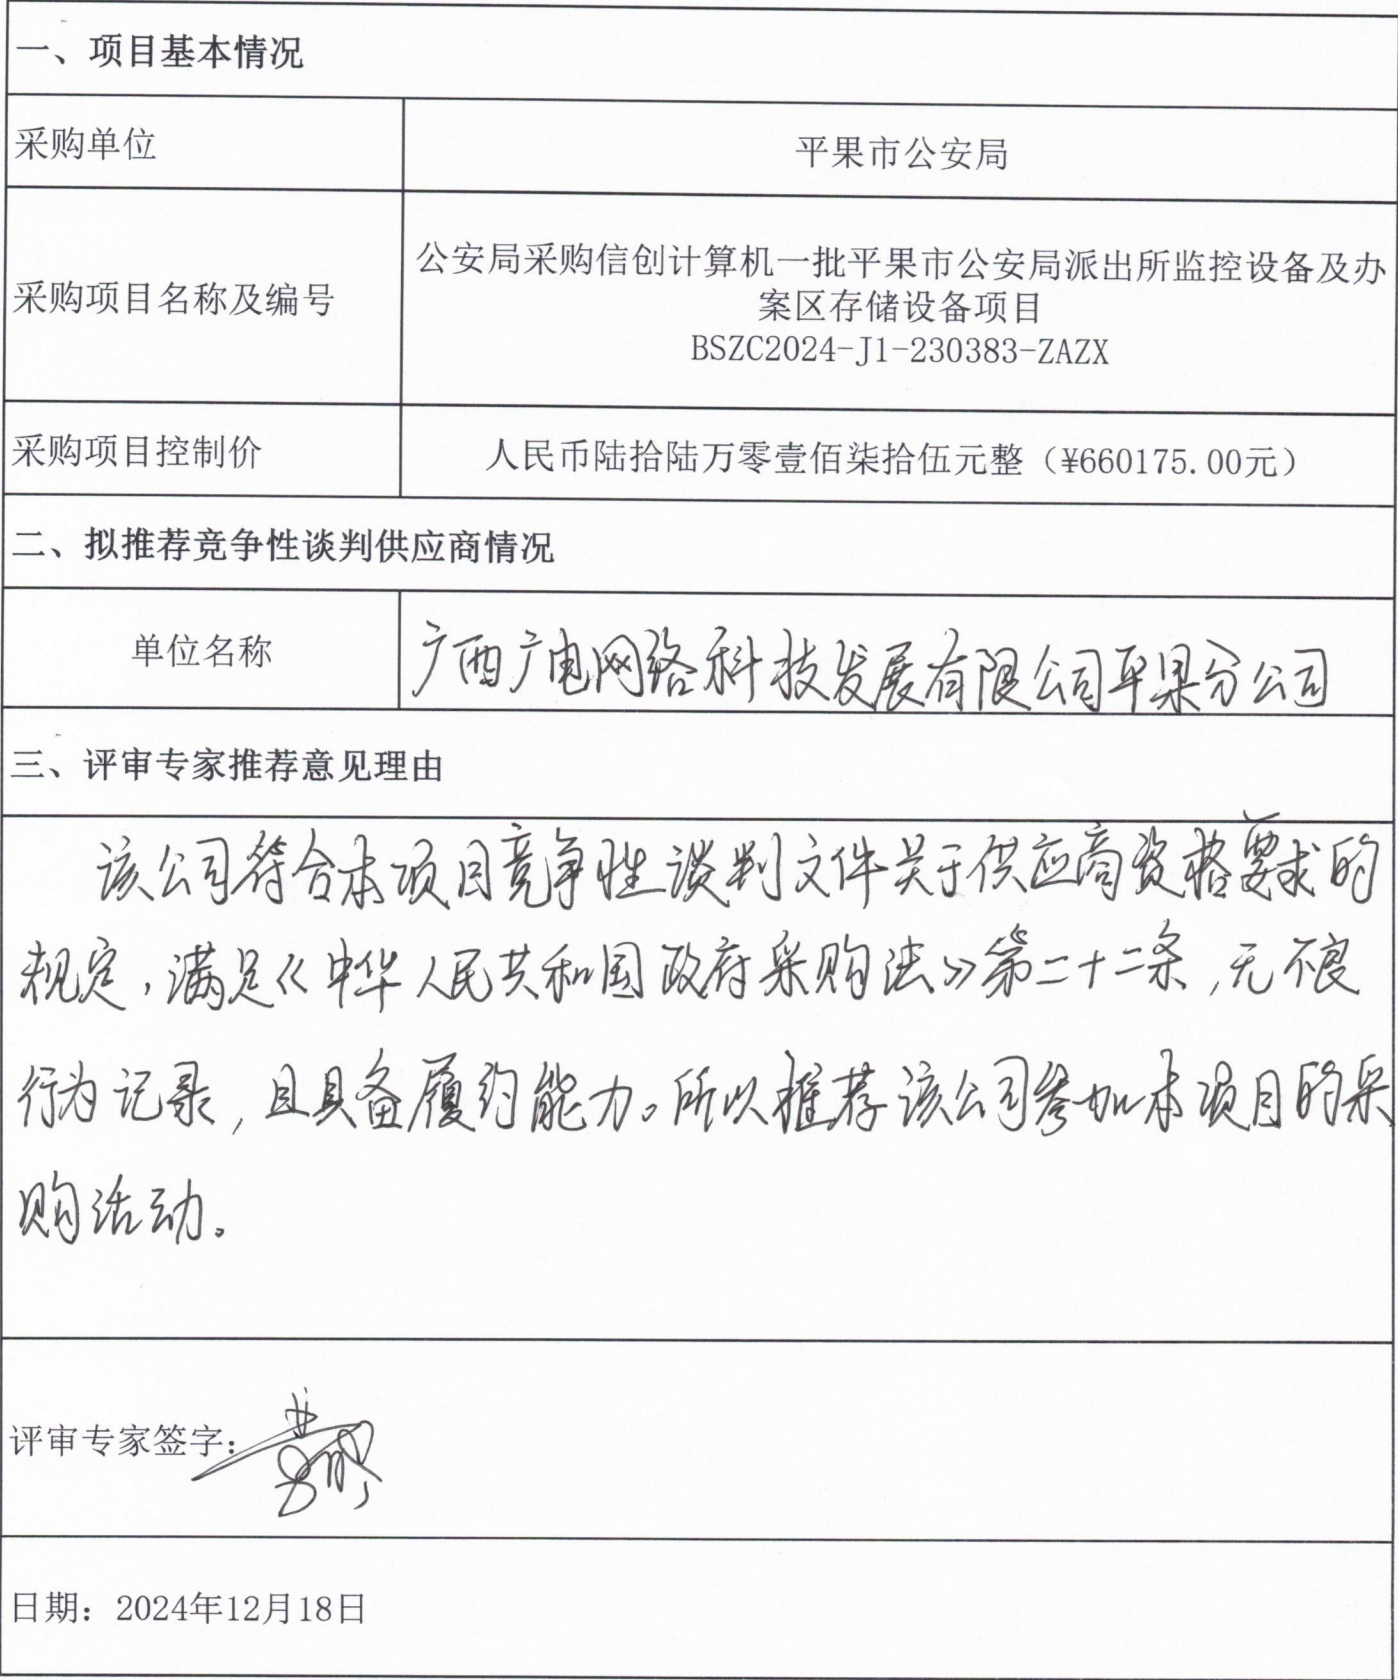 一、项目基本情况
采购单位
平果市公安局
采购项目名称及编号
公安局采购信创计算机一批平果市公安局派出所监控设备及办
案区存储设备项目
BSZC2024-J1-230383-ZAZX
采购项目控制价
人民币陆拾陆万零壹佰柒拾伍元整（¥660175.00元）
二、拟推荐竞争性谈判供应商情况
单位名称
广西广电网络科技发展有限公司平果分公司
三、评审专家推荐意见理由
该公司符合本项目竞争性谈判文件关于供应商资格要求的
规定，满足《中华人民共和国政府采购法》第二十二条，无不良
行为记录，且具备履约能力。所以推荐该公司参加本项目的采
购活动。
评审专家签字：
日期：2024年12月18日